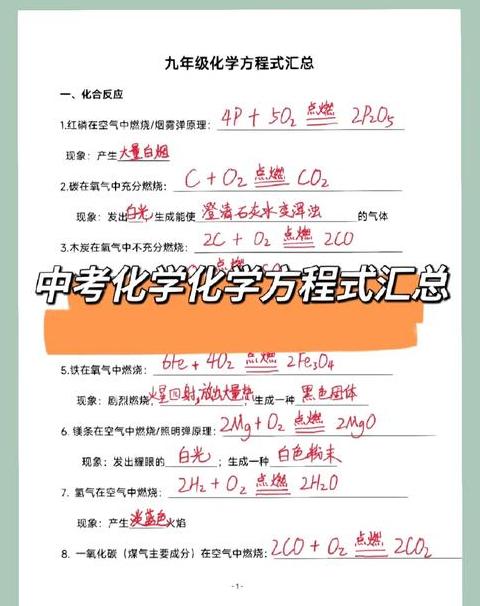 九年级化学方程式汇总
一、化合反应
1.红磷在空气中燃烧/烟雾弹原理：4P + 5O₂ 点燃 2P₂O₅
现象：产生大量白烟
2.碳在氧气中充分燃烧：C + O₂ 点燃 CO₂
现象：发出白光,生成能使 澄清石灰水变浑浊 的气体
3.木炭在氧气中不充分燃烧：2C + O₂ 点燃 2CO
中考化学化学方程式汇总
5.铁在氧气中燃烧：6Fe + 4O₂ 点燃 2Fe₃O₄
现象：剧烈燃烧,火星四射,放出大量热,生成一种 黑色固体
6. 镁条在空气中燃烧/照明弹原理：2Mg + O₂ 点燃 2MgO
现象：发出耀眼的 白光 ；生成一种 白色粉末
7. 氢气在空气中燃烧：2H₂ + O₂ 点燃 2H₂O
现象：产生淡蓝色火焰
8. 一氧化碳（煤气主要成分）在空气中燃烧：2CO + O₂ 点燃 2CO₂
- 1 -